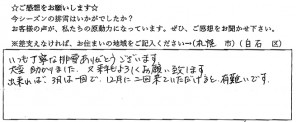 ☆ご感想をお願いします☆
今シーズンの排雪はいかがでしたか？
お客様の声が、私たちの原動力になっています。ぜひ、ご感想をお聞かせ下さい。
※差支えなければ、お住まいの地域をご記入ください→(札幌 市) (白石 区)
いつも丁寧な排雪ありがとうございます。
大変助かりました。又来年もよろしくお願い致します
出来れば、3月は一回で、12月に二回来ていただけると有難いです。